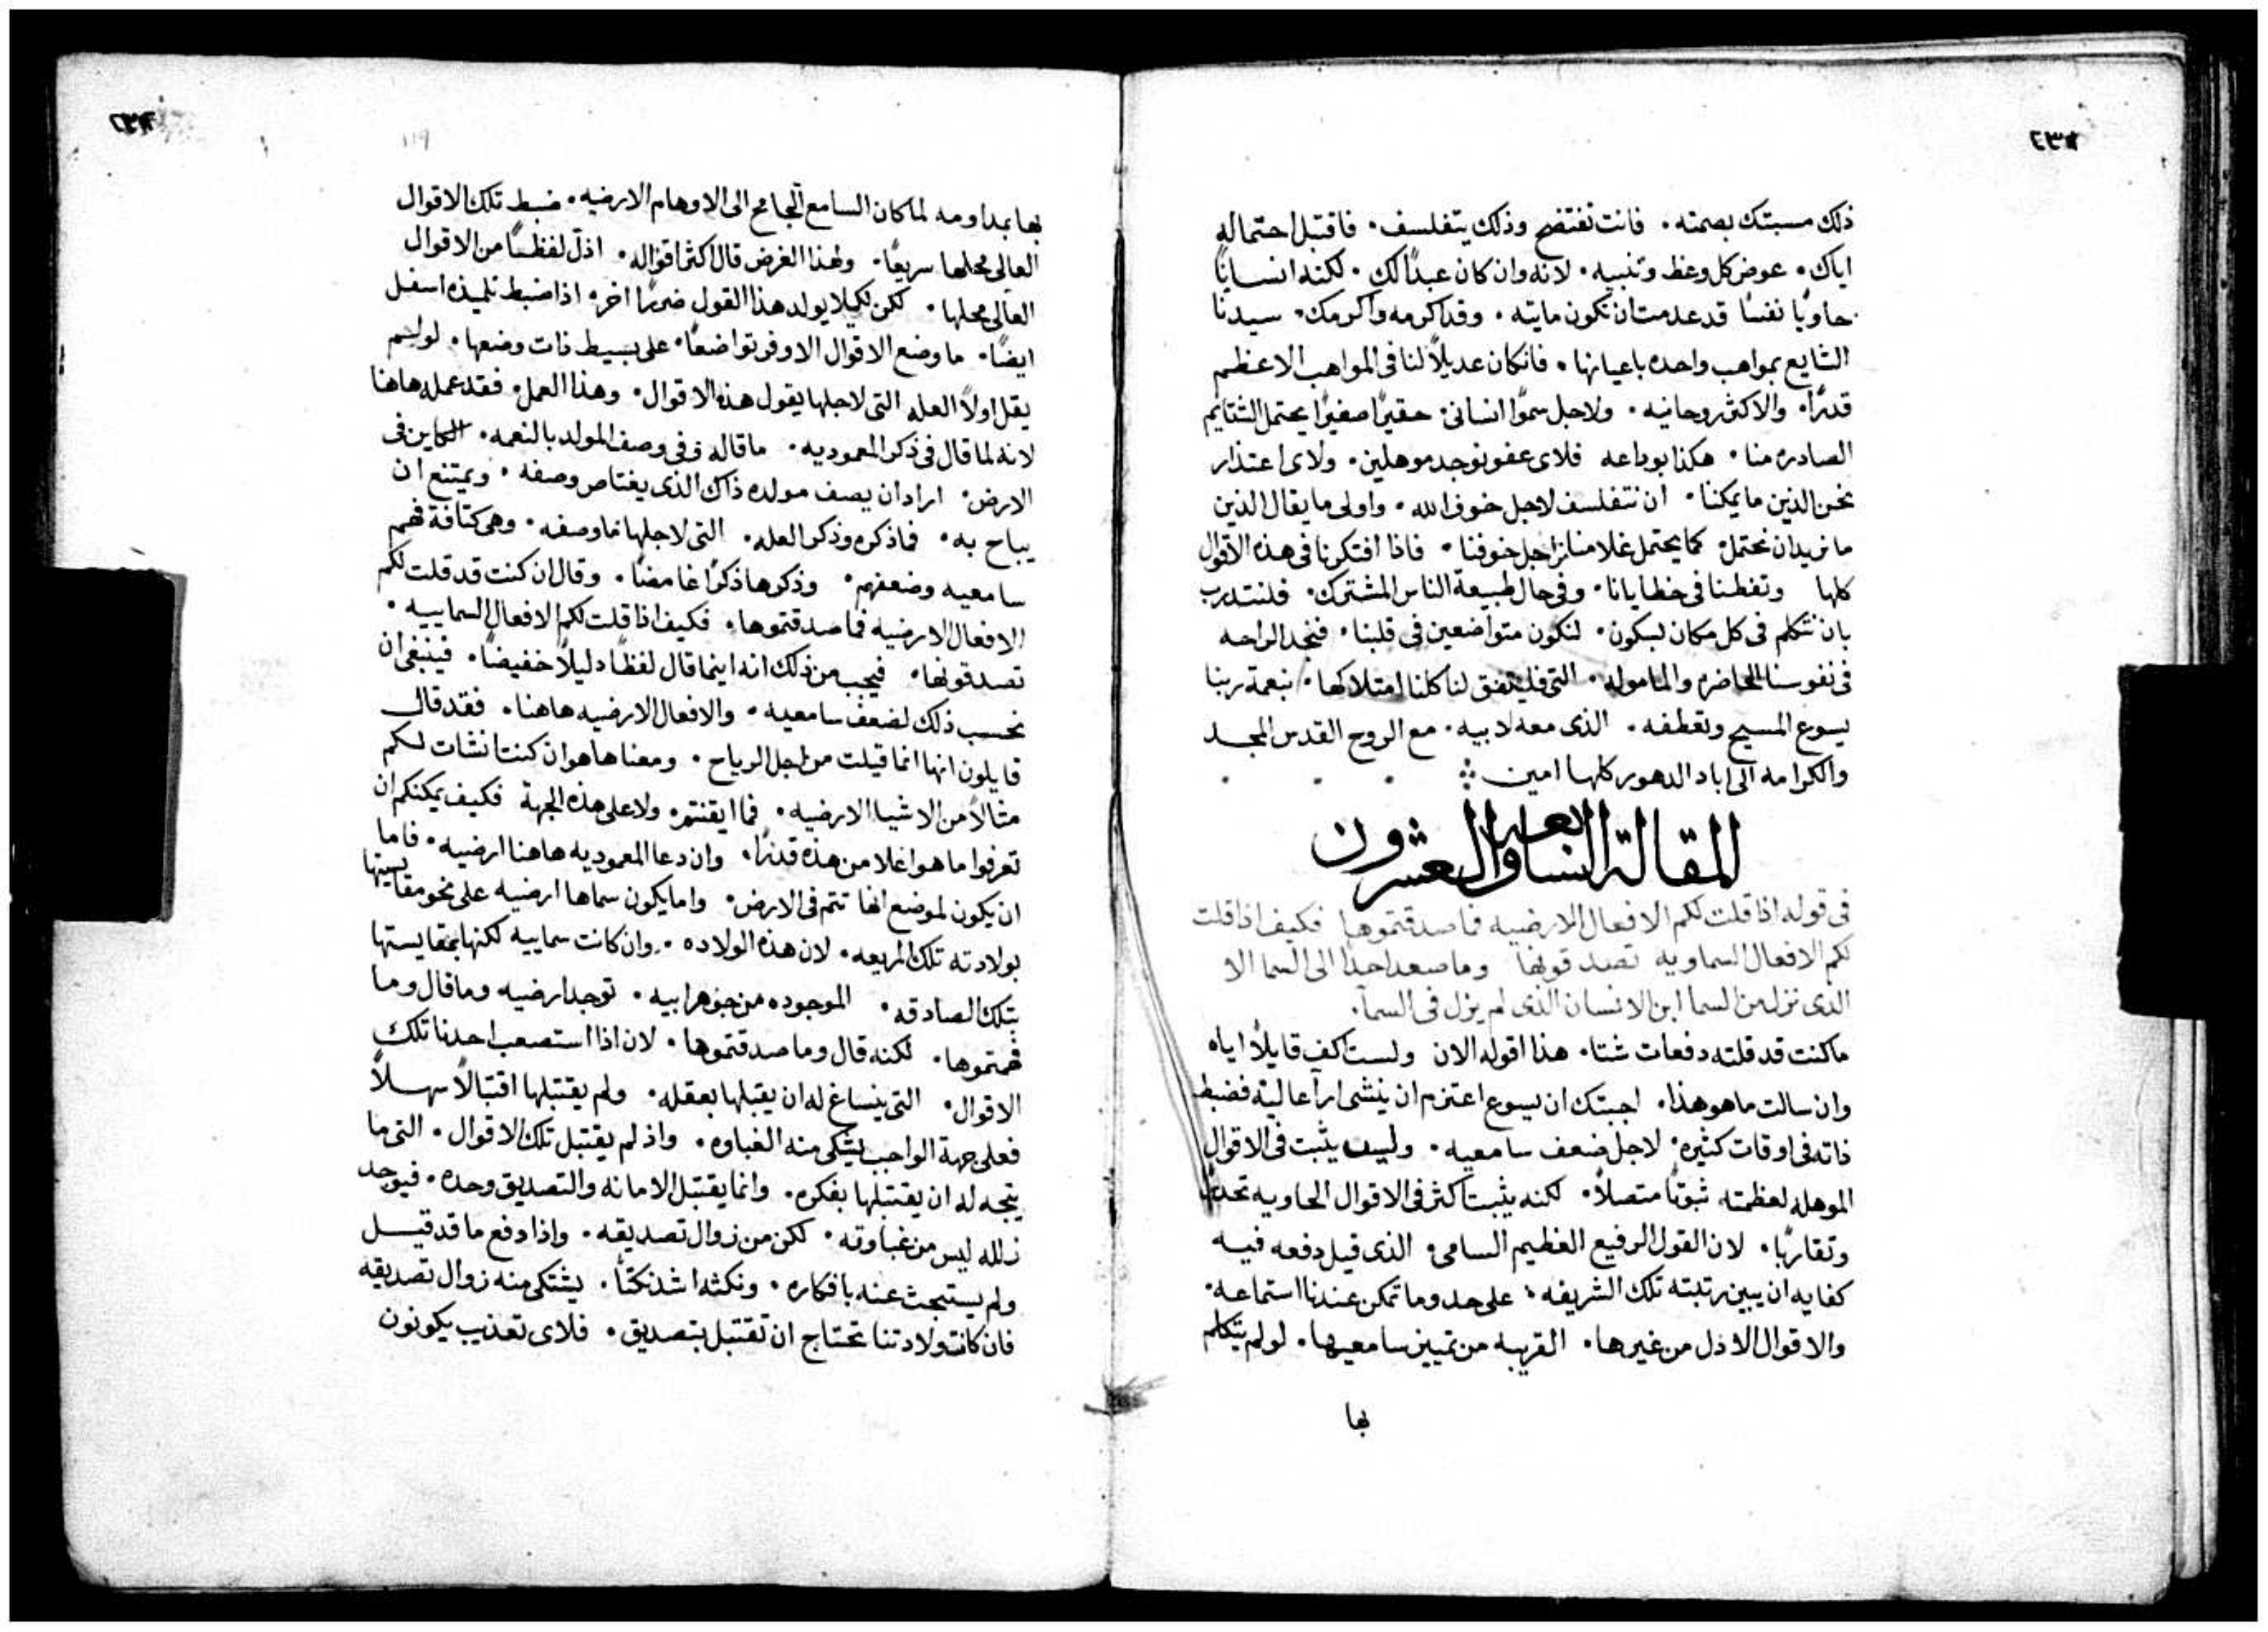 ذلك مسبتك بصمته. فانت تفتضح وذلك يتفلسف. فاقتبل احتماله
اياك. عوض كل وعظ وتنبيه. لانه وان كان عبدًا لك. لكنه انسانًا
حاويًا نفسًا قد عدمت ان تكون مايته. وقد اكرمه واكرمك. سيدنا
الشايع بمواهب واحده باعيانها. فانكان عديلاً لنا في المواهب الاعظم
قدرًا. والاكثر روحانيه. ولاجل سموًا انساني حقيرًا صغيرًا يحتمل الشتايم
الصادره منا. هكذا بوداعه فلاى عفو نوجد موهلين. ولاى اعتذار
نحن الذين ما يمكننا. ان نتفلسف لاجل خوف الله. واولى ما يقال الذين
ما نريد ان نحتمل كما يحتمل غلامنا من اجل خوفنا. فاذا افتكرنا في هذه الاقوال
كلها وتفطنا في خطايانا. وفي حال طبيعة الناس المشترك. فلنتدرب
بان نتكلم في كل مكان بسكون. لنكون متواضعين في قلبنا. فنجد الراحه
في نفوسنا الحاضره والماموله. التي فليتفق لنا كلنا امتلاكها. بنعمة ربنا
يسوع المسيح وتعطفه. الذى معه لابيه. مع الروح القدس المجد
والكرامه الى اباد الدهور كلها امين
المقاله السابعه والعشرون
في قوله اذا قلت لكم الافعال الارضيه فما صدقتموها فكيف اذا قلت
لكم الافعال السماويه تصدقونها وما صعد احدًا الى السما الا
الذى نزل من السما ابن الانسان الذى لم يزل في السمآ.
ما كنت قد قلته دفعات شتا. هذا اقوله الان ولست اكف قايلاً اياه
وان سالت ما هو هذا. اجبتك ان يسوع اعتزم ان ينشى ارآ عالية فضبط
ذاته في اوقات كثيره. لاجل ضعف سامعيه. وليس يثبت في الاقوال
الموهله لعظمته ثبوتًا متصلاً. لكنه يثبت اكثر في الاقوال الحاويه تحدرًا
وتقاربًا. لان القول الرفيع العظيم السامى الذى قيل دفعه فيه
كفايه ان يبين رتبته تلك الشريفه. على حد وما تمكن عندنا استماعه.
والاقوال الاذل من غيرها. القريبه من تمييز سامعيها. لو لم يتكلم
بها
بها بمداومه لما كان السامع الجامح الى الاوهام الارضيه. ضبط تلك الاقوال
العالى محلها سريعًا. ولهذا الغرض قال اكثر اقواله. اذل لفظًا من الاقوال
العالى محلها. لكن لكيلا يولد هذا القول ضررًا اخر. اذا ضبط تلميذه اسفل
ايضًا. ما وضع الاقوال الاوفر تواضعًا. على بسيط ذات وضعها. لو لم
يقل اولاً العله التى لاجلها يقول هذه الاقوال. وهذا العمل فقد عمله هاهنا
لانه لما قال في ذكر المعموديه. ما قاله وفي وصف المولد بالنعمه. الكاين في
الارض. اراد ان يصف مولده ذاك الذى يعتاص وصفه. ويمتنع ان
يباح به. فما ذكره وذكر العله. التى لاجلها ما وصفه. وهى كثافة فهم
سامعيه وضعفهم. وذكرها ذكرًا غامضًا. وقال ان كنت قد قلت لكم
الافعال الارضيه فما صدقتموها. فكيف اذا قلت لكم الافعال السماييه.
تصدقونها. فيجب من ذلك انه اينما قال لفظًا دليلاً خفيضًا. فينبغى ان
نحسب ذلك لضعف سامعيه. والافعال الارضيه هاهنا. فقد قال
قايلون انها انما قيلت من اجل الرياح. ومعناها هو ان كنت انشات لكم
مثالاً من الاشيا الارضيه. فما ايقنتم. ولا على هذه الجهة فكيف يمكنكم ان
تعرفوا ما هو اعلا من هذه قدرًا. وان دعا المعموديه هاهنا ارضيه. فاما
ان يكون لموضع انها تتم في الارض. واما يكون سماها ارضيه على نحو مقايستها
بولادته تلك المريعه. لان هذه الولاده. وان كانت سماييه لكنها بمقايستها
بتلك الصادقه. الموجوده من جوهر ابيه. توجد ارضيه وما قال وما
فهمتموها. لكنه قال وما صدقتموها. لان اذا استصعب احدنا تلك
الاقوال. التى ينساغ له ان يقبلها بعقله. ولم يقتبلها اقتبالاً سهلاً
فعلى جهة الواجب يشتكى منه الغباوه. واذ لم يقتبل تلك الاقوال. التى ما
يتجه له ان يقتبلها بفكره. وانما يقتبل الامانه والتصديق وحده. فيوجد
زلله ليس من غباوته. لكن من زوال تصديقه. واذا دفع ما قد قيل
ولم يستبحث عنه بافكاره. ونكثه اشد نكثًا. يشتكى منه زوال تصديقه
فان كانت ولادتنا تحتاج ان تقتبل بتصديق. فلاى تعذيب يكونون